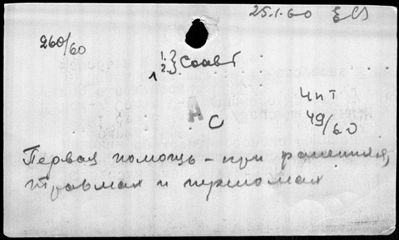 25.1.60
260/60
1.
2. } Соавт
1
Чит
49/60
А
С
Первая помощь – при ранениях,
травмах и переломах